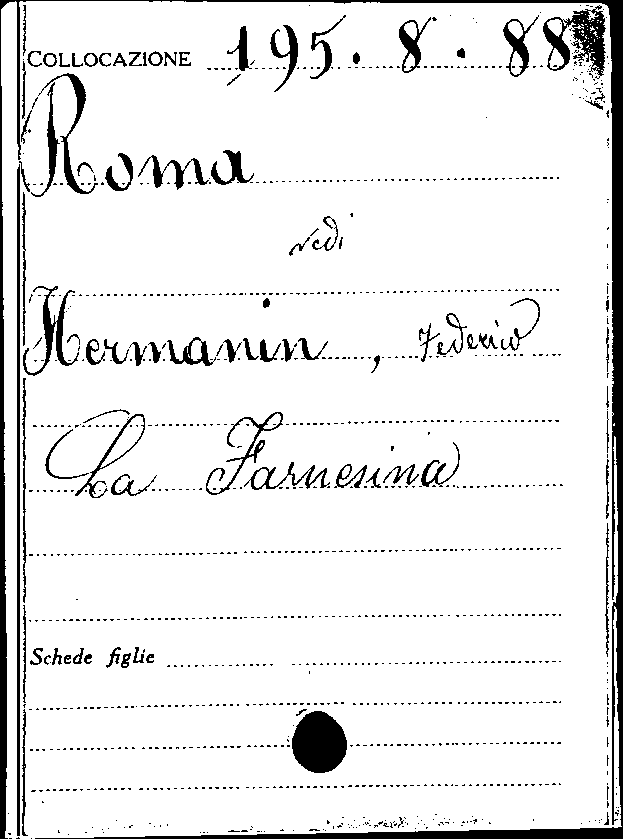 COLLOCAZIONE 195. 8. 88
Roma
vedi
Hermanin, Federico
La Farnesina
Schede figlie